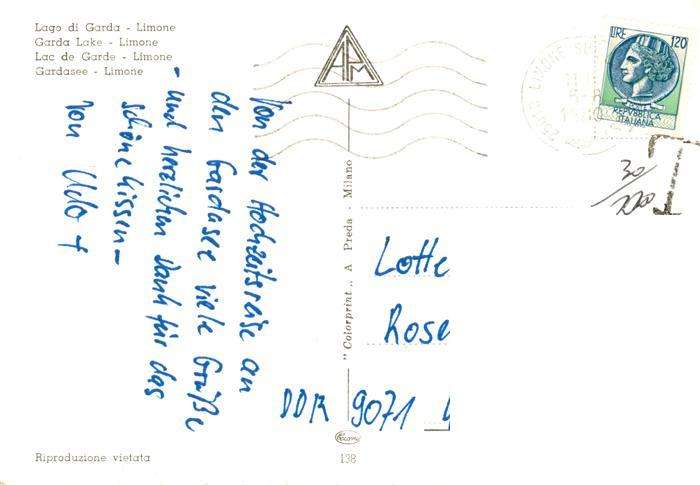 Lago di Garda - Limone
Garda Lake - Limone
Lac de Garde - Limone
Gardasee - Limone
APM
LIRE 120
REPVBBLICA
ITALIANA
LIMONE
T
30
Von der Hochzeitsreise an
den Gardasee viele Grüße
- und herzlichen Dank für das
schöne Kissen -
Von Udo +
"Colorprint,, A Preda - Milano
Lotte
Rose
DDR 9071
Riproduzione vietata
138